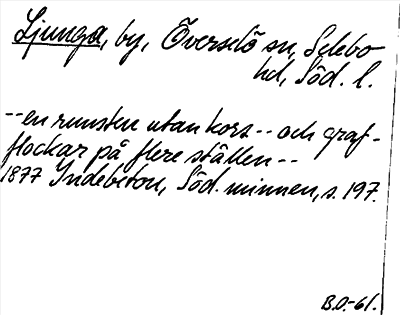 Ljunga, by, Överselö sn, Selebo
hd, Söd. l.
--en runsten utan kors -- och graf-
flockar på flere ställen--
1877 Indebetou, Söd. minnen, s. 197.
B.O.-61.